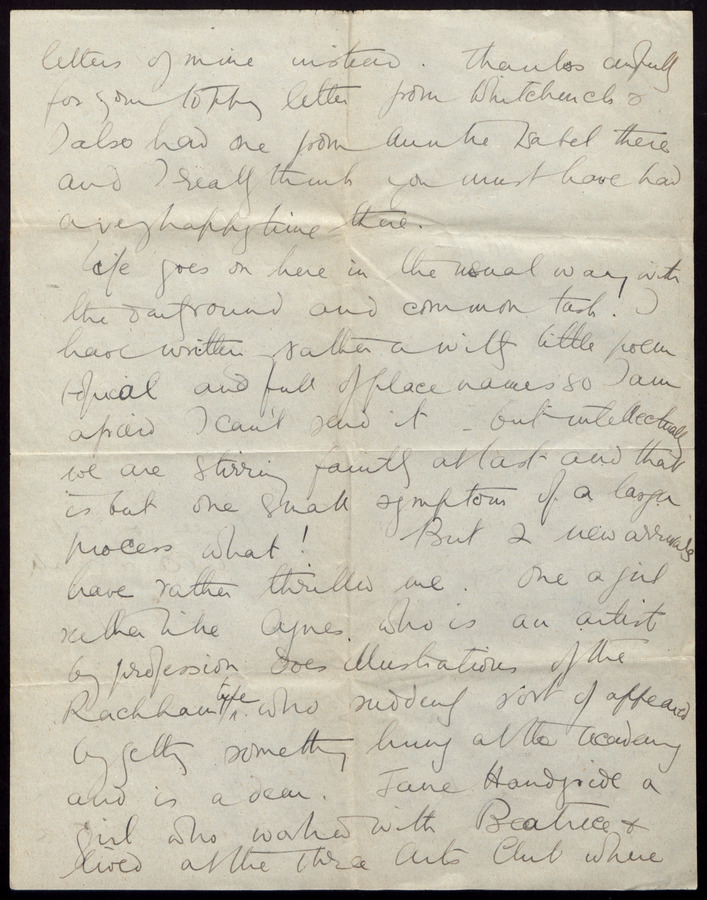 letters of mine instead. Thanks awfully
for your topping letter from Whitchurch &
I also had one from Auntie Isabel there
and I really think you must have had
a very happy time there.
Life goes on here in the usual way, with
the and common task. I
have written rather a witty little poem
topical and full of place names so I am
afraid I can't send it - but intellectually
we are stirring faintly at last and that
is but one small symptom of a larger
process what! But 2 new arrivals
have rather thrilled me. One a girl
rather like Agnes. who is an artist
by profession does illustrations of the
Rackham type. who suddenly sort of appeared
by getting something hung at the Academy
and is a dear. Jane a
girl who worked with Beatrice &
lived at the Three Arts Club where